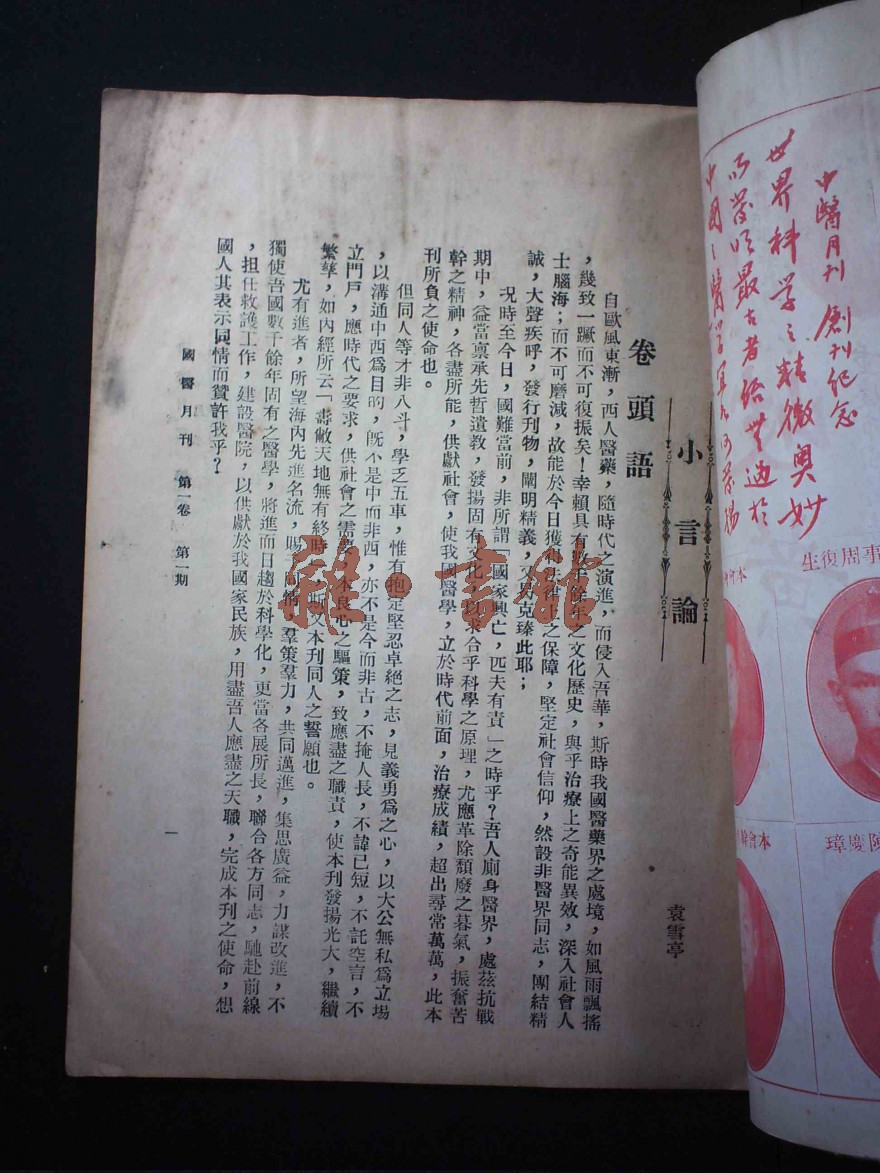 小言論
卷頭語
袁雪亭
自歐風東漸，西人醫藥，隨時代之演進，而侵入吾華，斯時我國醫藥界之處境，如風雨飄搖
，幾致一蹶而不可復振矣！幸賴具有數千餘年之文化歷史，與乎治療上之奇能異效，深入社會人
士腦海；而不可磨減，故能於今日獲得法律上之保障，堅定社會信仰，然設非醫界同志，團結精
誠，大聲疾呼，發行刊物，闡明精義，又曷克臻此耶；
況時至今日，國難當前，非所謂「國家興亡，匹夫有責」之時乎？吾人廁身醫界，處茲抗戰
期中，益當禀承先哲遺教，發揚固有文化，以求合乎科學之原理，尤應革除頹廢之暮氣，振奮苦
幹之精神，各盡所能，供獻社會，使我國醫學，立於時代前面，治療成績，超出尋常萬萬，此本
刊所負之使命也。
但同人等才非八斗，學乏五車，惟有抱定堅忍卓絕之志，見義勇爲之心，以大公無私爲立場
，以溝通中西爲目的，旣不是中而非西，亦不是今而非古，不掩人長，不諱已短，不託空言，不
立門戶，應時代之要求，供社會之需要，本良心之驅策，致應盡之職責，使本刊發揚光大，繼續
繁華，如內經所云「壽敝天地無有終時」斯又本刊同人之誓願也。
尤有進者，所望海內先進名流，賜同情，羣策羣力，共同邁進，集思廣益，力謀改進，不
獨使吾國數千餘年固有之醫學，將進而日趨於科學化，更當各展所長，聯合各方同志，馳赴前線
，担任救護工作，建設醫院，以供獻於我國家民族，用盡吾人應盡之天職，完成本刊之使命，想
國人其表示同情而贊許我乎？
國醫月刊 第一卷 第一期
一
雜·書館
中醫月刊創刊紀念
世界科学之精微奥妙
中國之醫學
事周復生
本會
陳慶璋
本會